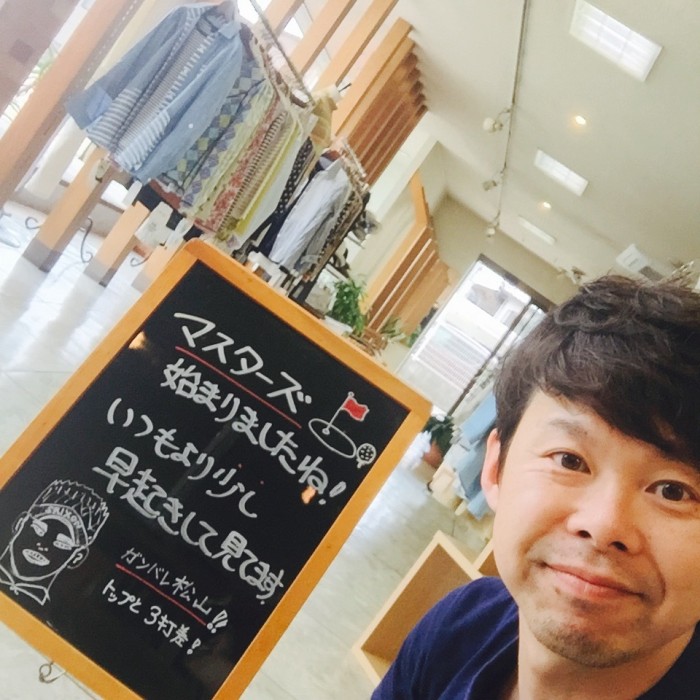 マスターズ
始まりましたね!
いつもより少し
早起きして見てます
ガンバレ松山!!
トップと3打差!
SRIXON